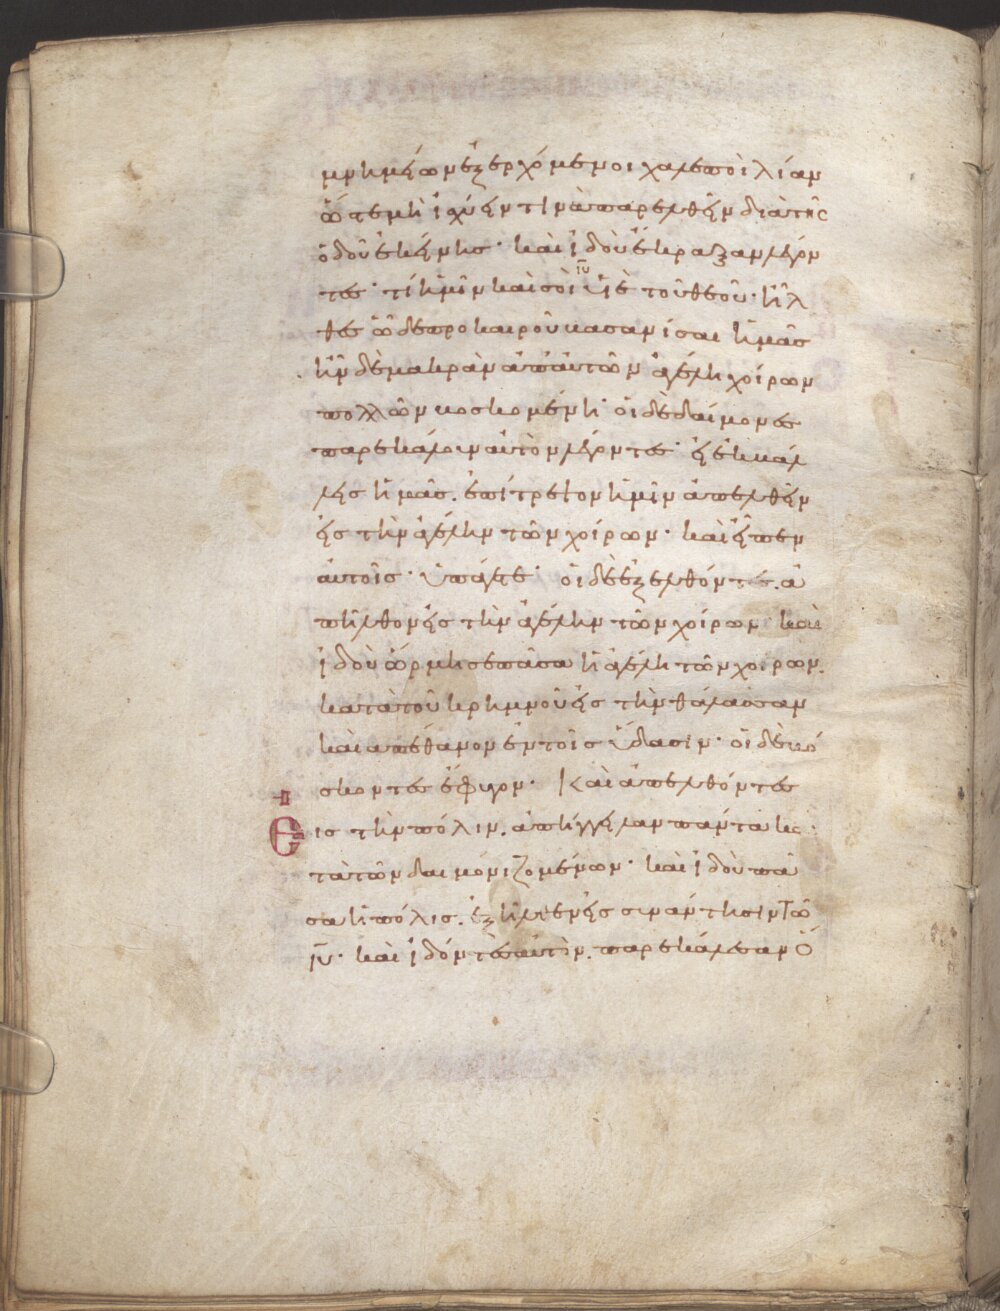 μνημείων ἐξερχόμενοι χαλεποὶ λίαν
ὥστε μὴ ἰσχύειν τινὰ παρελθεῖν διὰ τῆς
ὁδοῦ ἐκείνης· καὶ ἰδοὺ ἔκραξαν λέγον
τες· τί ἡμῖν καὶ σοὶ ιυ υἱὲ τοῦ θεοῦ· ἦλ
θες ὧδε προ καιροῦ βασανίσαι ἡμᾶς
ἦν δὲ μακρὰν ἀπ αὐτῶν ἀγέλη χοίρων
πολλῶν βοσκομένη· οἱ δὲ δαίμονες
παρεκάλουν αὐτὸν λέγοντες· εἰ ἐκβάλ
λεις ἡμᾶς. ἐπίτρεψον ἡμῖν ἀπελθεῖν
εἰς τὴν ἀγέλην τῶν χοίρων· καὶ εἶπεν
αὐτοῖς· ὑπάγετε· οἱ δὲ ἐξελθόντες. ἀ
πῆλθον εἰς τὴν ἀγέλην τῶν χοίρων καὶ
ἰδοὺ ὥρμησε πᾶσα ἡ ἀγέλη τῶν χοίρων.
κατὰ τοῦ κρημνοῦ εἰς τὴν θάλασσαν
καὶ ἀπέθανον ἐν τοῖς ὕδασιν· οἱ δὲ βό
σκοντες ἔφυγον· Καὶ ἀπελθόντες
εἰς τὴν πόλιν. ἀπήγγειλαν πάντα κς
τὰ τῶν δαιμονιζομένων· καὶ ἰδοὺ πᾶ
σα ἡ πόλις. ἐξῆλθεν εἰς συνάντησιν τῶ
ιυ· καὶ ἰδόντες αὐτὸν. παρεκάλεσαν ὅ